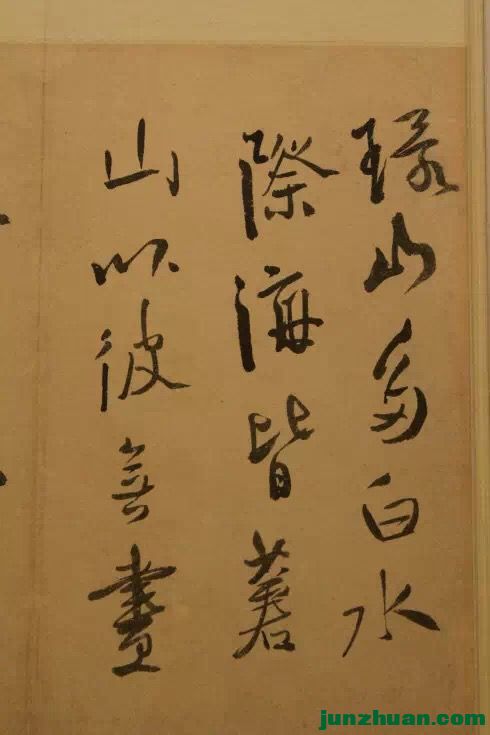 環山多白水
際海皆蒼
山以彼無盡
junzhuan.com